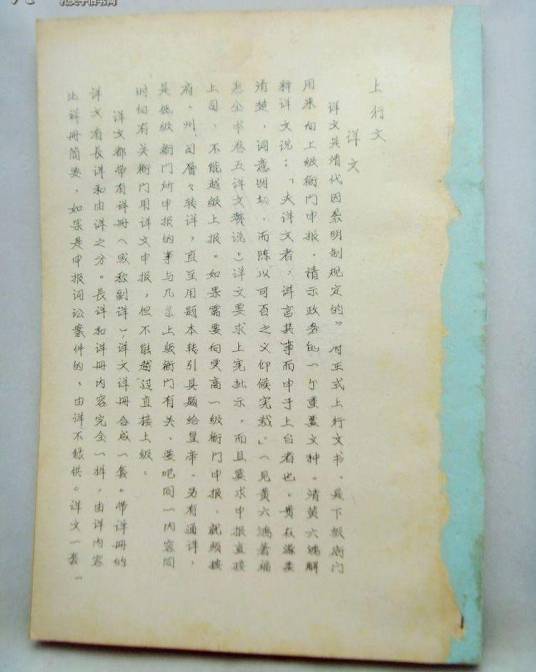 上行文
详文
详文是清代因袭明制规定的。对正式上行文书,是下级衙门
用来向上级衙门申报、请示政务的一个重要文种。清黄六鸿解
释详文说:"夫详文者,详言其事而申于上台者也。贵在源委
清楚,词意明切,而陈以可否之文仰候宪裁。"(见黄六鸿著福
惠全书卷五详文赘说)详文要求上宪批示,而且要求申报直接
上司,不能越级上报。如果需要向更高一级衙门申报,就须按
府、州、司层层转详,直至用题本转引具题给皇帝。另有通详,
是低级衙门所申报的事与几个上级衙门有关,要把同一内容同
时向有关衙门用详文申报,但不能越过直接上级。
详文都带有详册(或称副详),详文详册合成一套。带详册的
详文有长详和由详之分。长详和详册内容完全一样,由详内容
比详册简要,如果是申报词讼案件的,由详不录供。详文一套一